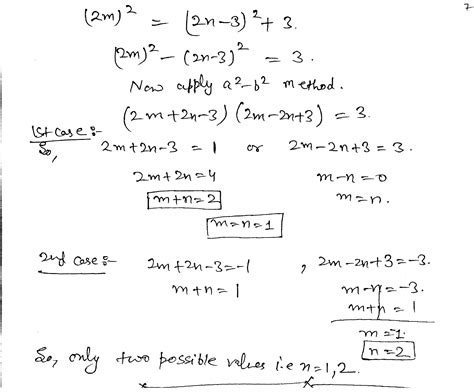 7
(2m)² = (2n-3)² + 3.
(2m)² - (2n-3)² = 3.
Now apply a²-b² method.
(2m+2n-3) (2m-2n+3) = 3.
1st case :-
So, 2m+2n-3 = 1 or 2m-2n+3 = 3.
2m+2n=4 m-n=0
m+n=2 m=n.
m=n=1
2nd case :- 2m+2n-3=-1 , 2m-2n+3=-3.
m+n=1 m-n=-3.
m+n=1
m=-1.
n=2
So, only two possible values i.e n=1,2.